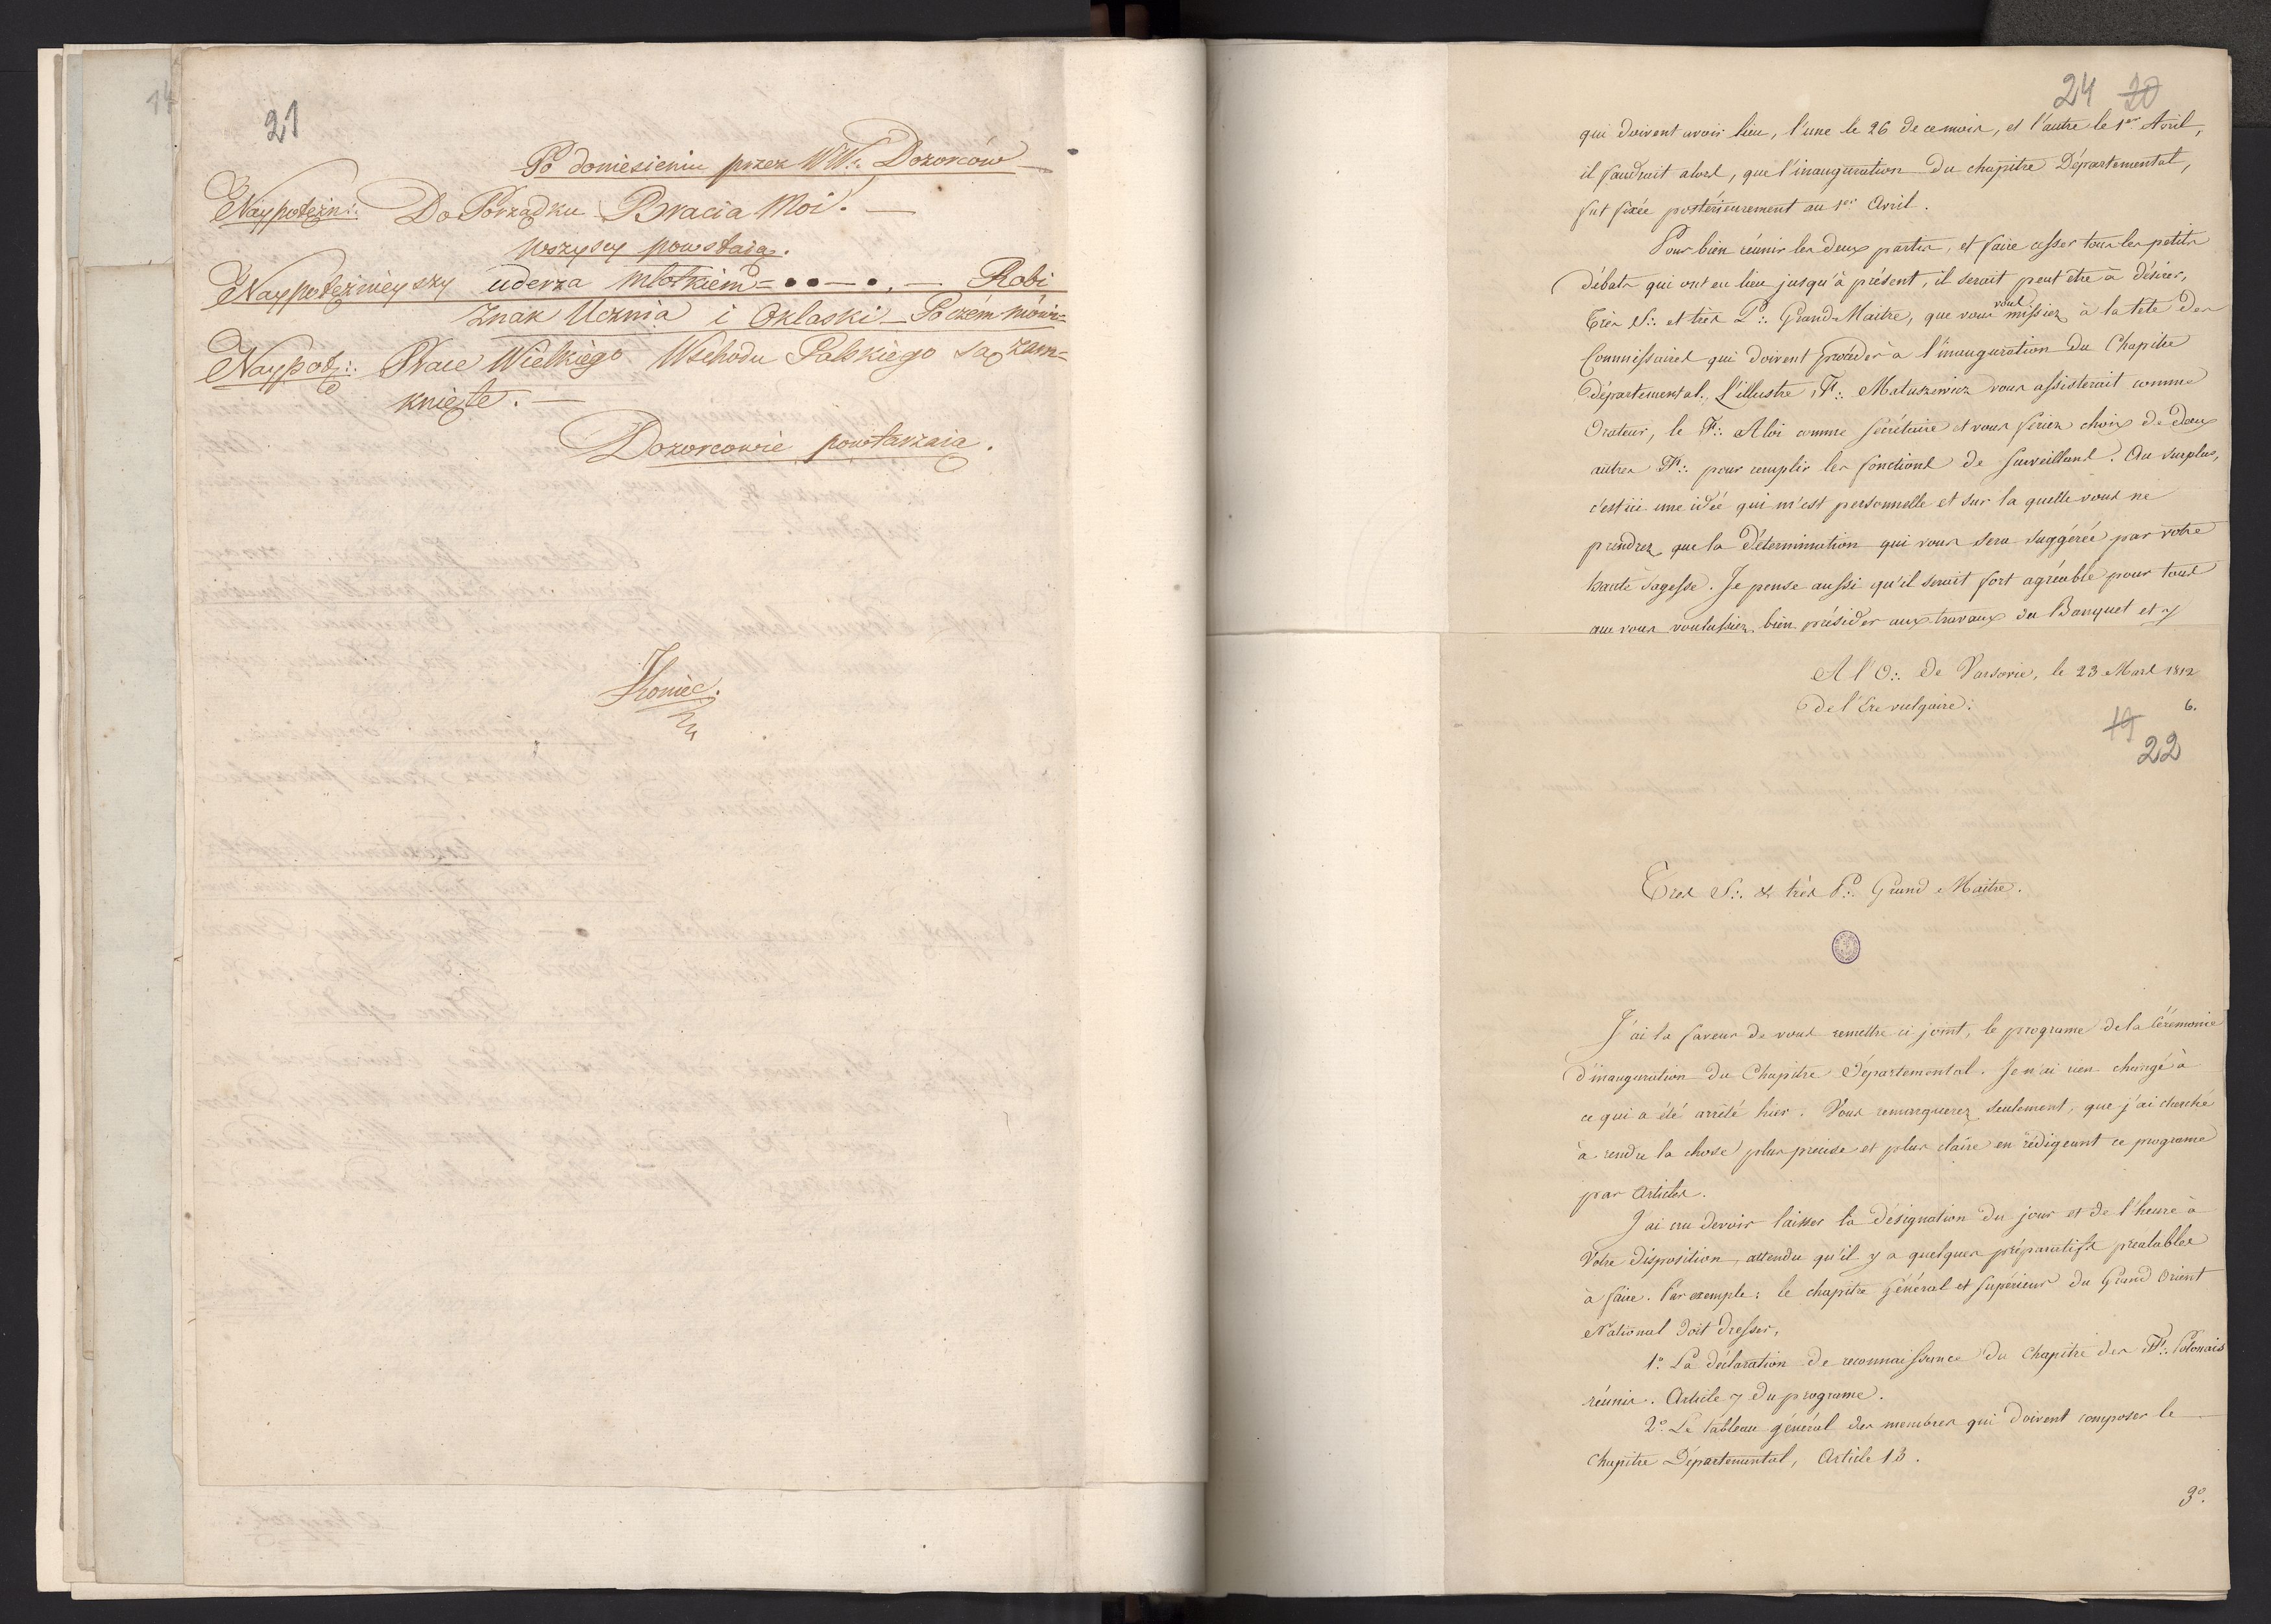 21
Po doniesieniu przez WW∴ Dozorców
Naypotężn∴ Do Porządku Bracia Moi. —
wszyscy powstaią.
Naypotężnieyszy uderza młotkiem = ●●—●. — Robi
Znak Ucznia i Oklaski — Poczém mówi=
Naypotę∴ Prace Wielkiego Wschodu Polskiego są zam=
knięte. —
Dozorcowie powtarzaią.
Koniec.
24 20
qui doivent avoir lieu, l'une le 26 de ce mois, et l'autre le 1er Avril,
il faudrait alors, que l'inauguration du chapitre Départemental,
fut fixée postérieurement au 1er Avril.
Pour bien réunir les deux partis, et faire cesser tous les petits
débats qui ont eu lieu jusqu'à présent, il serait peut être à désirer,
Très S∴ et très P∴ Grand-Maitre, que vous vous missiez à la tête des
Commissaires qui doivent procéder à l'inauguration du Chapitre
départemental. L'illustre F∴ Matuszewicz vous assisterait comme
Orateur, le F∴ Aloi comme secrétaire et vous feriez choix de deux
autres FF∴ pour remplir les fonctions de surveillans. Au surplus,
c'est ici une idée qui m'est personnelle et sur la quelle vous ne
prendrez que la détermination qui vous sera suggérée par votre
haute sagesse. Je pense aussi qu'il serait fort agréable pour tous
que vous voulussiez bien présider aux travaux du Banquet et y
A l'O∴ de Varsovie, le 23 Mars 1812
de l'Ere vulgaire.
6.
19
22
Très S∴ & très P∴ Grand Maitre.
J'ai la faveur de vous remettre ci-joint, le programe de la Cérémonie
d'inauguration du Chapitre Départemental. Je n'ai rien changé à
ce qui a été arrêté hier. Vous remarquerez seulement, que j'ai cherché
à rendre la chose plus précise et plus claire en rédigeant ce programe
par Articles.
J'ai cru devoir laisser la désignation du jour et de l'heure à
Votre disposition, attendu qu'il y a quelques préparatifs prealables
à faire. Par exemple: le chapitre Général et Supérieur du Grand Orient
National doit dresser,
1º. La déclaration de reconnaissance du Chapitre des FF∴ Polonais
réunis. Article 7 du programe.
2º. Le tableau général des membres qui doivent composer le
Chapitre Départemental, Article 13.
3º.